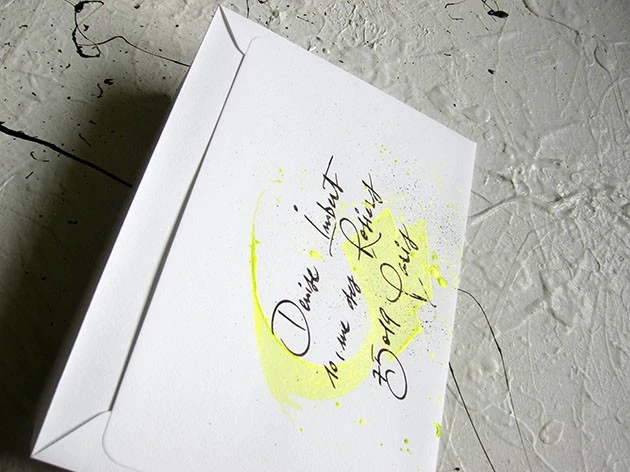 Denise Imbert
10, rue des Rosiers
75019 Paris